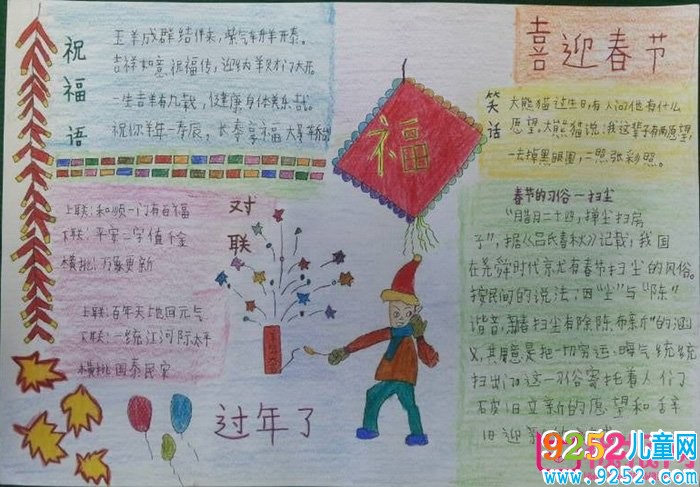 喜迎春节
祝福语
吉祥如意祝福传,
福
笑话
大熊猫过生日,有人问他有什么
愿望,大熊猫说:我这辈子有两愿望,
一去掉黑眼圈,二照张彩照。
对联
上联:和顺一门有百福
下联:平安二字值千金
横批:万象更新
上联:百年天地回元气
下联:一统江河际太平
横批国泰民安
春节的习俗一扫尘
“腊月二十四,掸尘扫房
子”,据《吕氏春秋》记载,我国
在尧舜时代就有春节扫尘的风俗。
按民间的说法:因“尘”与“陈”
谐音,新春扫尘有除陈布新”的涵
义,其用意是把一切穷运、晦气统统
扫出门这一习俗寄托着人们
破旧立新的愿望和辞
旧迎新的
过年了
9252儿童网
www.9252.com